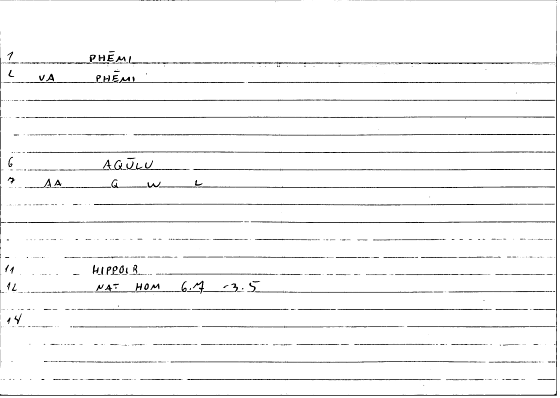 1 PHĒMI
2 VA PHĒMI
6 AQŪLU
7 AA Q W L
11 HIPPOKR
12 NAT HOM 6.7 -3.5
14